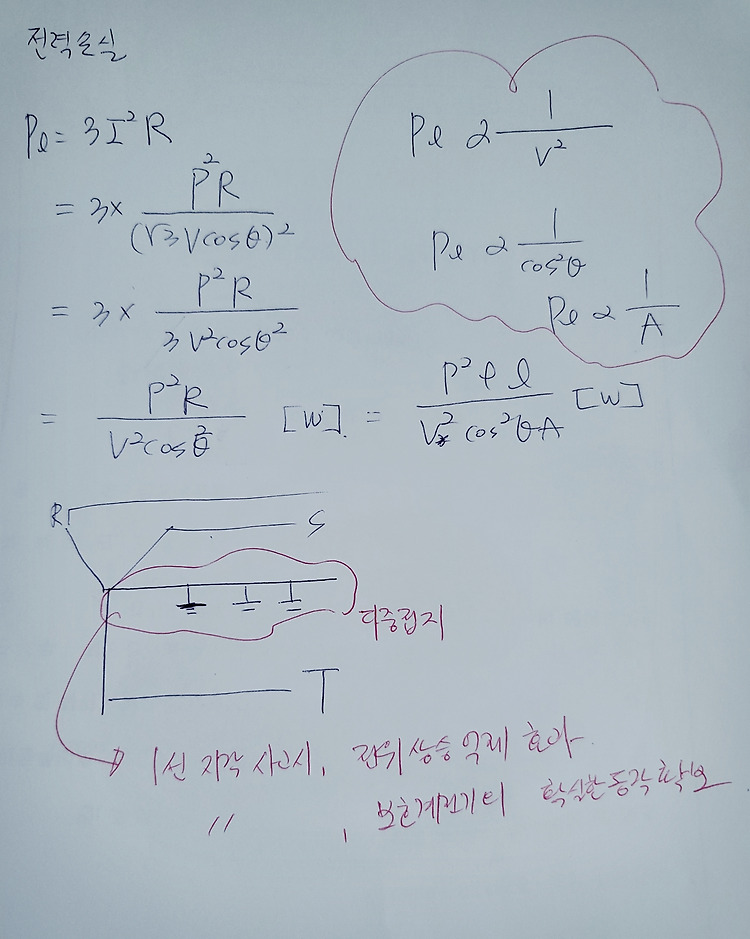 전력손실
Pℓ = 3I²R
= 3× P²R / (√3 V cosθ)²
= 3 × P²R / 3V²cosθ²
= P²R / V²cos²θ [W]. = P²ρℓ / V² cos²θA [W]
Pℓ ∝ 1 / V²
Pℓ ∝ 1 / cos²θ
Pℓ ∝ 1 / A
R
S
다중접지
T
1선 지락 사고시, 전위상승 억제 효과
〃 , 보호계전기의 확실한 동작 확보